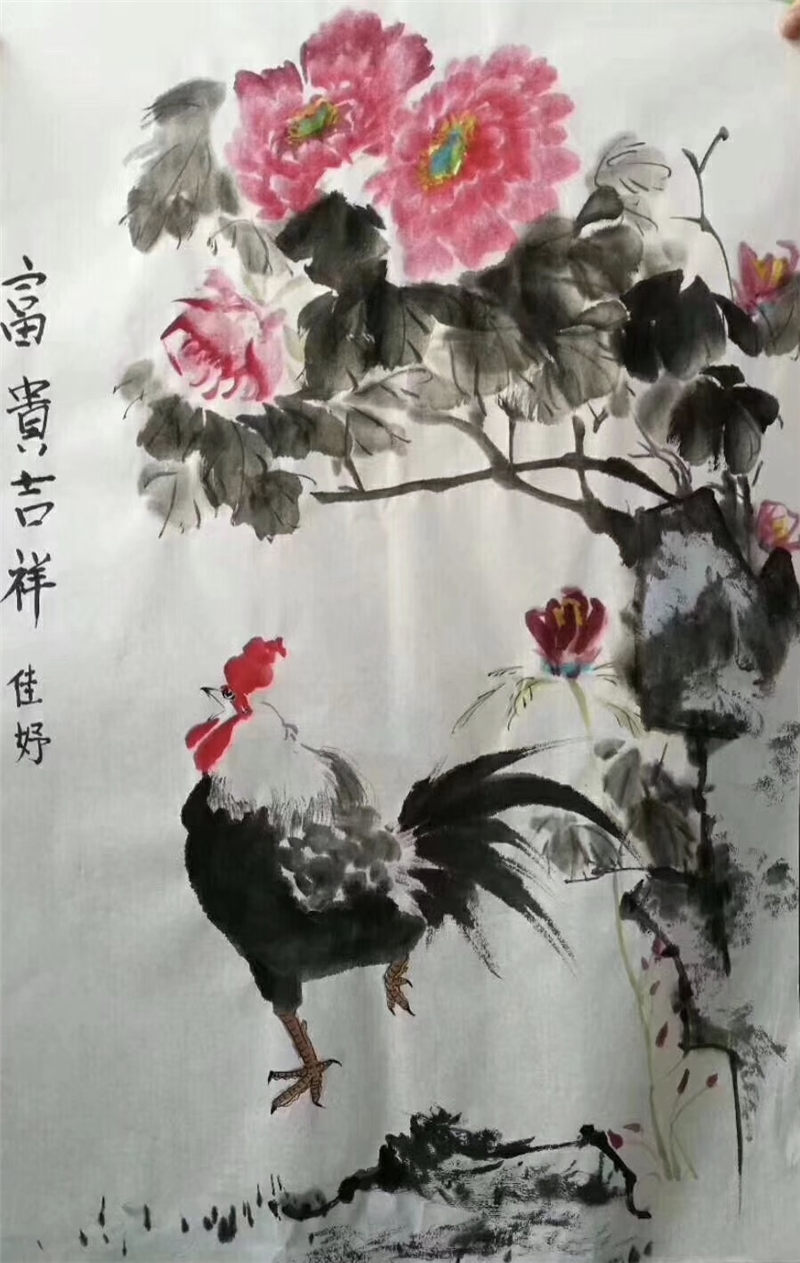 富貴吉祥
佳妤